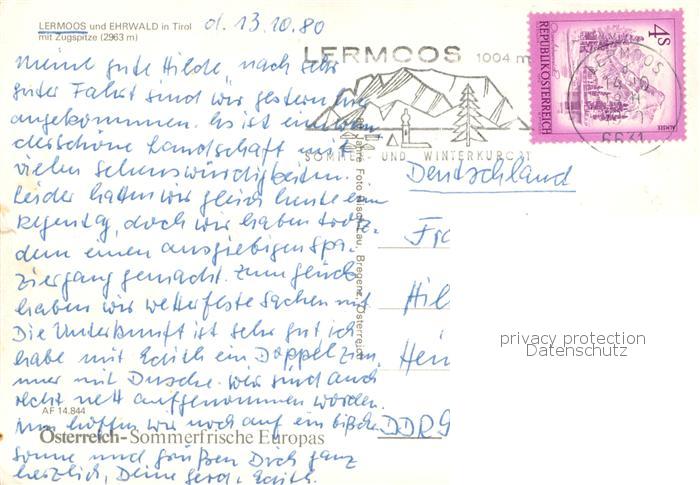 LERMOOS und EHRWALD in Tirol
mit Zugspitze (2963 m)
d. 13.10.80
Meine gute Hilde, nach sehr
guter Fahrt sind wir gestern hier
angekommen. Es ist eine wun-
derschöne Landschaft mit
vielen Sehenswürdigkeiten.
Leider hatten wir gleich heute einen
Regentag, doch wir haben trotz-
dem einen ausgiebigen Spa-
ziergang gemacht. Zum Glück
haben wir wetterfeste Sachen mit
Die Unterkunft ist sehr gut ich
habe mit Edith ein Doppelzim-
mer mit Dusche. Wir sind auch
recht nett aufgenommen worden.
Nun hoffen wir noch auf ein bißchen
Sonne und grüßen Dich ganz
herzlich, Deine Gerd, Edith.
AF 14.844
Österreich-Sommerfrische Europas
LERMOOS 1004 m
SOMMER- UND WINTERKURORT
4S
REPUBLIK ÖSTERREICH
ALMSEE
LERMOOS
6631
Foto Risch-Lau, Bregenz, Österreich
Deutschland
Fr
Hil
Hein
DDR 9
privacy protection
Datenschutz